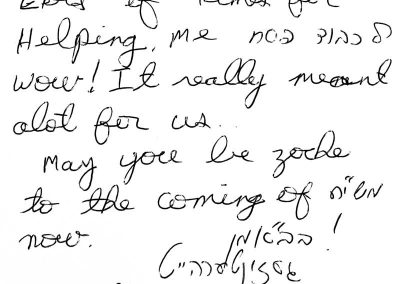 of
Helping me לכבוד פסח
wow! It really meant
alot for us..
May you be zoche
to the coming of משי"ח
now. בב"א אמן!